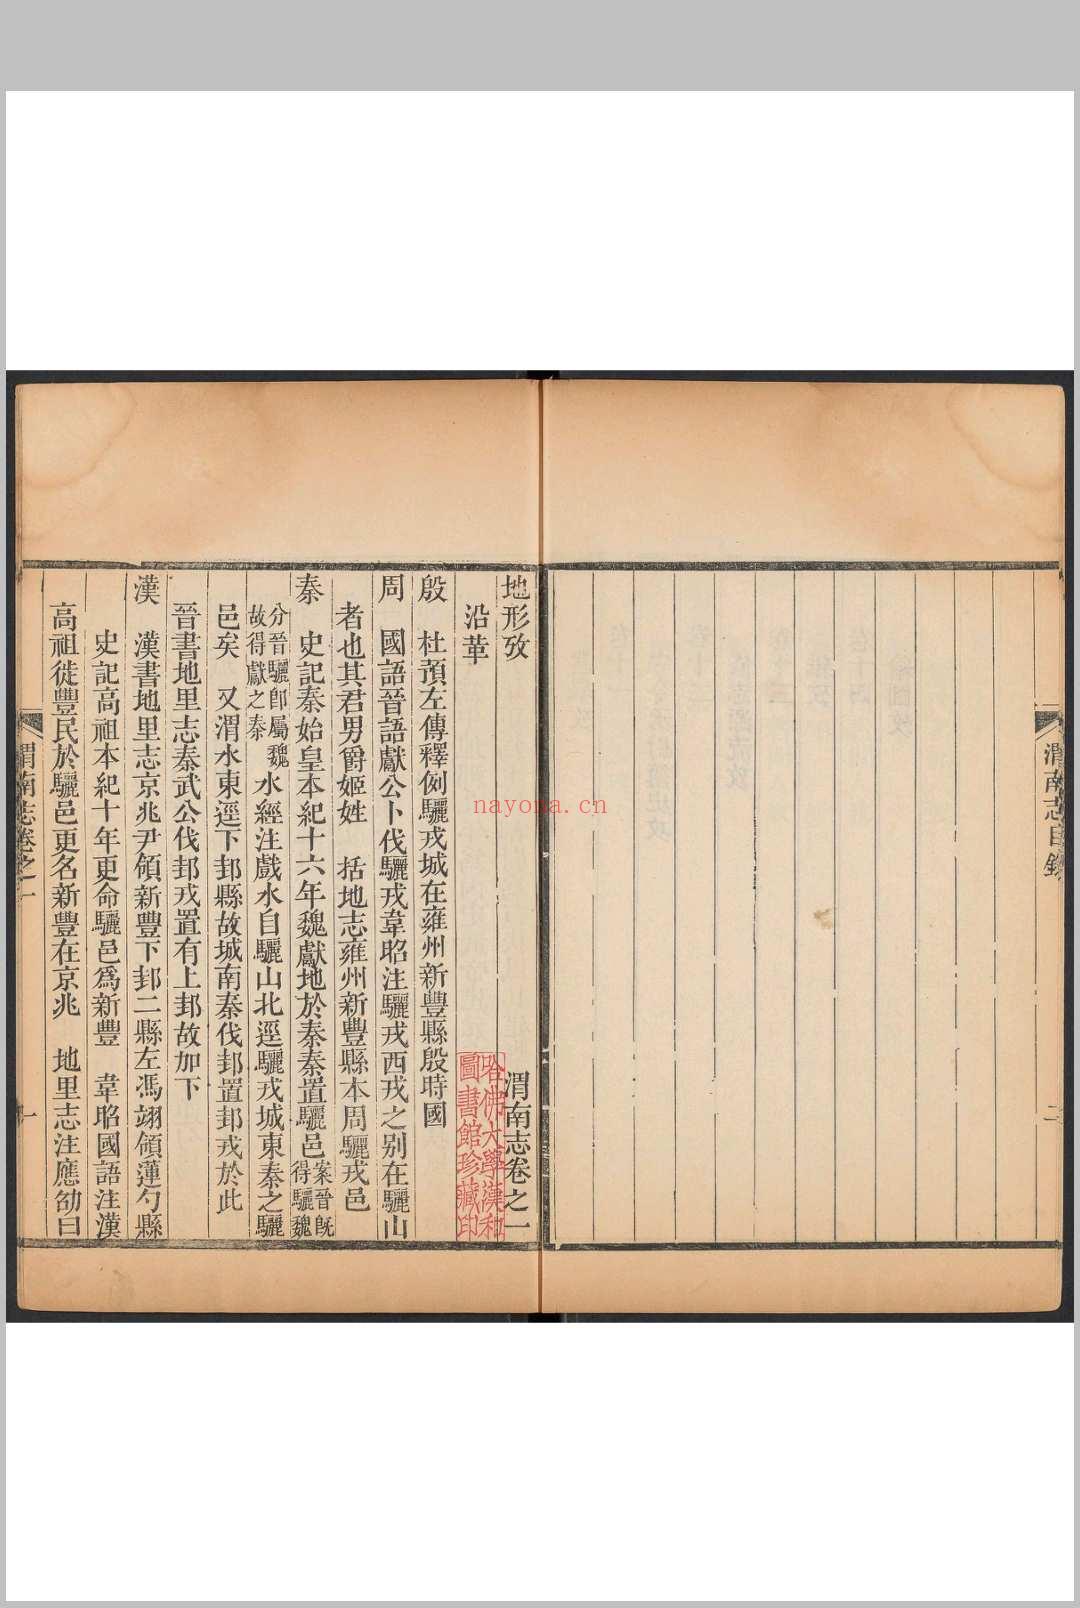 渭南志目錄
二
地形攷
渭南志卷之一
沿革
殷　杜預左傳釋例驪戎城在雍州新豐縣殷時國
周　國語晉語獻公卜伐驪戎韋昭注驪戎西戎之別在驪山
者也其君男爵姬姓　括地志雍州新豐縣本周驪戎邑
秦　史記秦始皇本紀十六年魏獻地於秦秦置驪邑案晉旣
得驪魏
分晉驪卽屬魏
故得獻之秦　水經注戲水自驪山北逕驪戎城東秦之驪
邑矣　又渭水東逕下邽縣故城南秦伐邽置邽戎於此
晉書地里志秦武公伐邽戎置有上邽故加下
漢　漢書地里志京兆尹領新豐下邽二縣左馮翊領蓮勺縣
史記高祖本紀十年更命驪邑爲新豐　韋昭國語注漢
高祖徙豐民於驪邑更名新豐在京兆　地里志注應劭曰
渭南志卷之一
一
哈佛大學漢和
圖書館珍藏印
nayona.cn